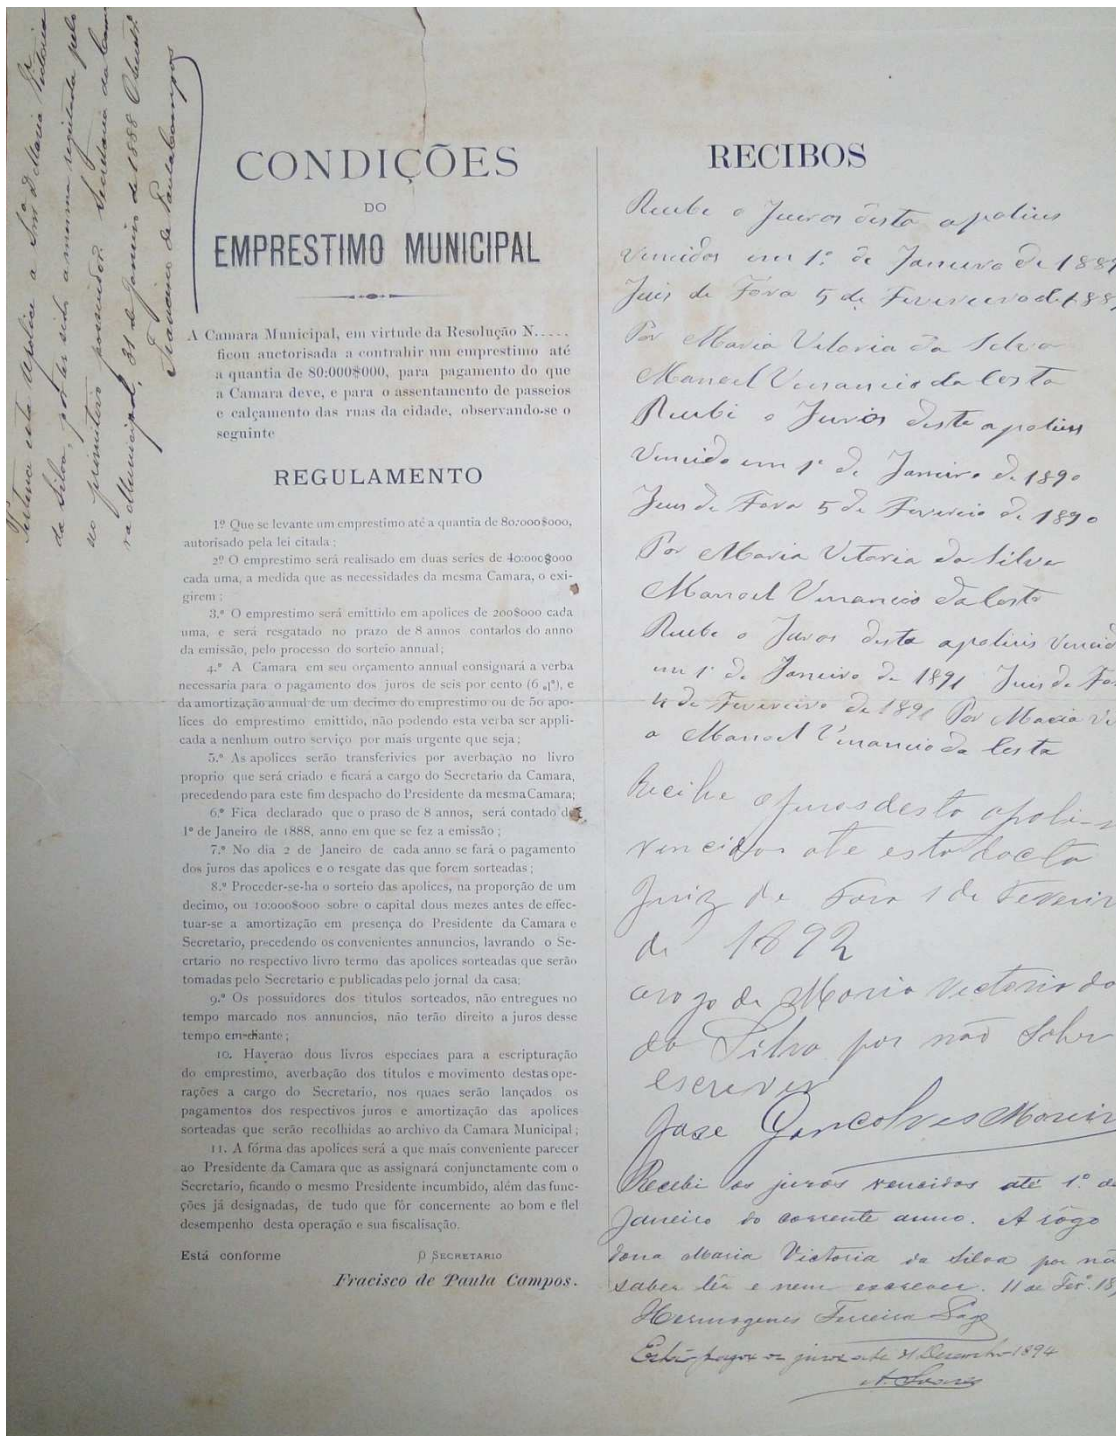 Pertence esta apolice a Snrª D. Maria Victoria
da Silva, por ter sido a mesma regeitada pelo
ao primeiro possuidor. Secretaria da Cama
ra Municipal, 31 de Janeiro de 1888
Francisco de Paula Campos
CONDIÇÕES
DO
EMPRESTIMO MUNICIPAL
A Camara Municipal, em virtude da Resolução N.....
ficou auctorisada a contrahir um emprestimo até
a quantia de 80:000$000, para pagamento do que
a Camara deve, e para o assentamento de passeios
e calçamento das ruas da cidade, observando-se o
seguinte
REGULAMENTO
1º Que se levante um emprestimo até a quantia de 80:000$000,
autorisado pela lei citada;
2º O emprestimo será realisado em duas series de 40:000$000
cada uma, a medida que as necessidades da mesma Camara, o exi-
girem;
3.º O emprestimo será emittido em apolices de 200$000 cada
uma, e será resgatado no prazo de 8 annos contados do anno
da emissão, pelo processo do sorteio annual;
4.º A Camara em seu orçamento annual consignará a verba
necessaria para o pagamento dos juros de seis por cento (6 º|º), e
da amortização annual de um decimo do emprestimo ou de 50 apo-
lices do emprestimo emittido, não podendo esta verba ser appli-
cada a nenhum outro serviço por mais urgente que seja;
5.ª As apolices serão transferivies por averbação no livro
proprio que será criado e ficará a cargo do Secretario da Camara,
precedendo para este fim despacho do Presidente da mesmaCamara;
6.º Fica declarado que o praso de 8 annos, será contado de
1º de Janeiro de 1888, anno em que se fez a emissão;
7.º No dia 2 de Janeiro de cada anno se fará o pagamento
dos juros das apolices e o resgate das que forem sorteadas;
8.º Proceder-se-ha o sorteio das apolices, na proporção de um
decimo, ou 10:000$000 sobre o capital dous mezes antes de effec-
tuar-se a amortização em presença do Presidente da Camara e
Secretario, precedendo os convenientes annuncios, lavrando o Se-
crtario no respectivo livro termo das apolices sorteadas que serão
tomadas pelo Secretario e publicadas pelo jornal da casa;
9.º Os possuidores dos titulos sorteados, não entregues no
tempo marcado nos annuncios, não terão direito a juros desse
tempo em diante;
10. Haverao dous livros especiaes para a escripturação
do emprestimo, averbação dos titulos e movimento destas ope-
rações a cargo do Secretario, nos quaes serão lançados os
pagamentos dos respectivos juros e amortização das apolices
sorteadas que serão recolhidas ao archivo da Camara Municipal;
11. A fórma das apolices será a que mais conveniente parecer
ao Presidente da Camara que as assignará conjunctamente com o
Secretario, ficando o mesmo Presidente incumbido, além das func-
ções já designadas, de tudo que fôr concernente ao bom e fiel
desempenho desta operação e sua fiscalisação.
Está conforme O SECRETARIO
Fracisco de Paula Campos.
RECIBOS
Recibe o Juros desta apolicis
Vencidos em 1º de Janeiro de 1889
Juis de Fora 5 de Fevereiro de 1889
Por Maria Vitoria da Silva
Manoel Venancio da Costa
Recibi o Juros desta apolicis
Vencido em 1º de Janeiro de 1890
Juis de Fora 5 de Fevereio de 1890
Por Maria Vitoria da Silva
Manoel Venancio da Costa
Recibe o Juros desta apolicis Vencid
em 1º de Janeiro de 1891 Juis de Fo
4 de Fevereiro de 1891 Por Maria Vi
a Manoel Venancio da Costa
Recibe o juros desta apoli-s
vencidos até esta dacta
Juiz de Fora 1 de Feverir
de 1892
arogo de Maria Victoria da
da Silva por não Saber
escrever
Jose Goncolves Moreir
Recebi os juros vencidos até 1º de
Janeiro do corrente anno. A rôgo
dona Maria Victoria da Silva por nã
saber lêr e nem escrever. 11 de Fevº. 18
Hermogenes Ferreira
Estão pagos os juros ate 31 Dezembro 1894
A. Soares